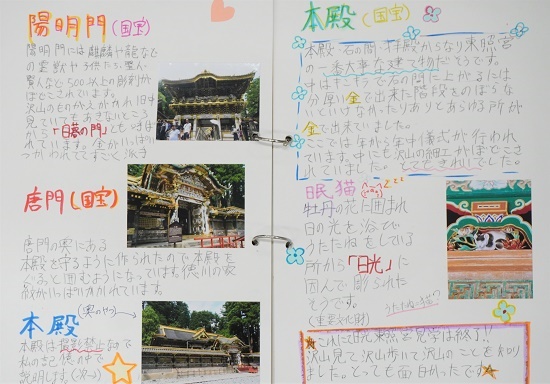 陽明門(国宝)
陽明門には麒麟や龍など
の霊獣や子供たち、聖人
賢人など、500以上の彫刻が
ほどこされている。
沢山のものがえがかれ1日中
見ていてもあきないところ
から「日暮の門」とも呼ば
れています。金がいっぱい
つかわれててすごく派手
唐門(国宝)
唐門の奥にある
本殿を守るように作られたので本殿を
ぐるっと囲むようになっています。徳川の家
紋がいっぱいつかわれています。
本殿(奥のやつ)
本殿は撮影禁止なので
説明します。(次→)
本殿(国宝)
本殿・石の間・拝殿からなり東照宮
の一番大事な建て物だそうです。
中はすごくて石の間に上がるには
分厚い金で出来た階段をのぼらな
いといけなかったりありとあらゆる所が
金で出来ていました。
ここでは年から年中儀式が行われ
ています。中にも沢山の細工がほどこさ
れていました。とてもきれいでした。
眠猫
zzz
牡丹の花に囲まれ
日の光を浴びて
うたたねをしている
所から「日光」に
因んで彫られた
そうです。
(重要文化財)
これにて日光東照宮見学は終了!!
沢山見て沢山歩いて沢山のことを知り
ました。とっても面白かったです。